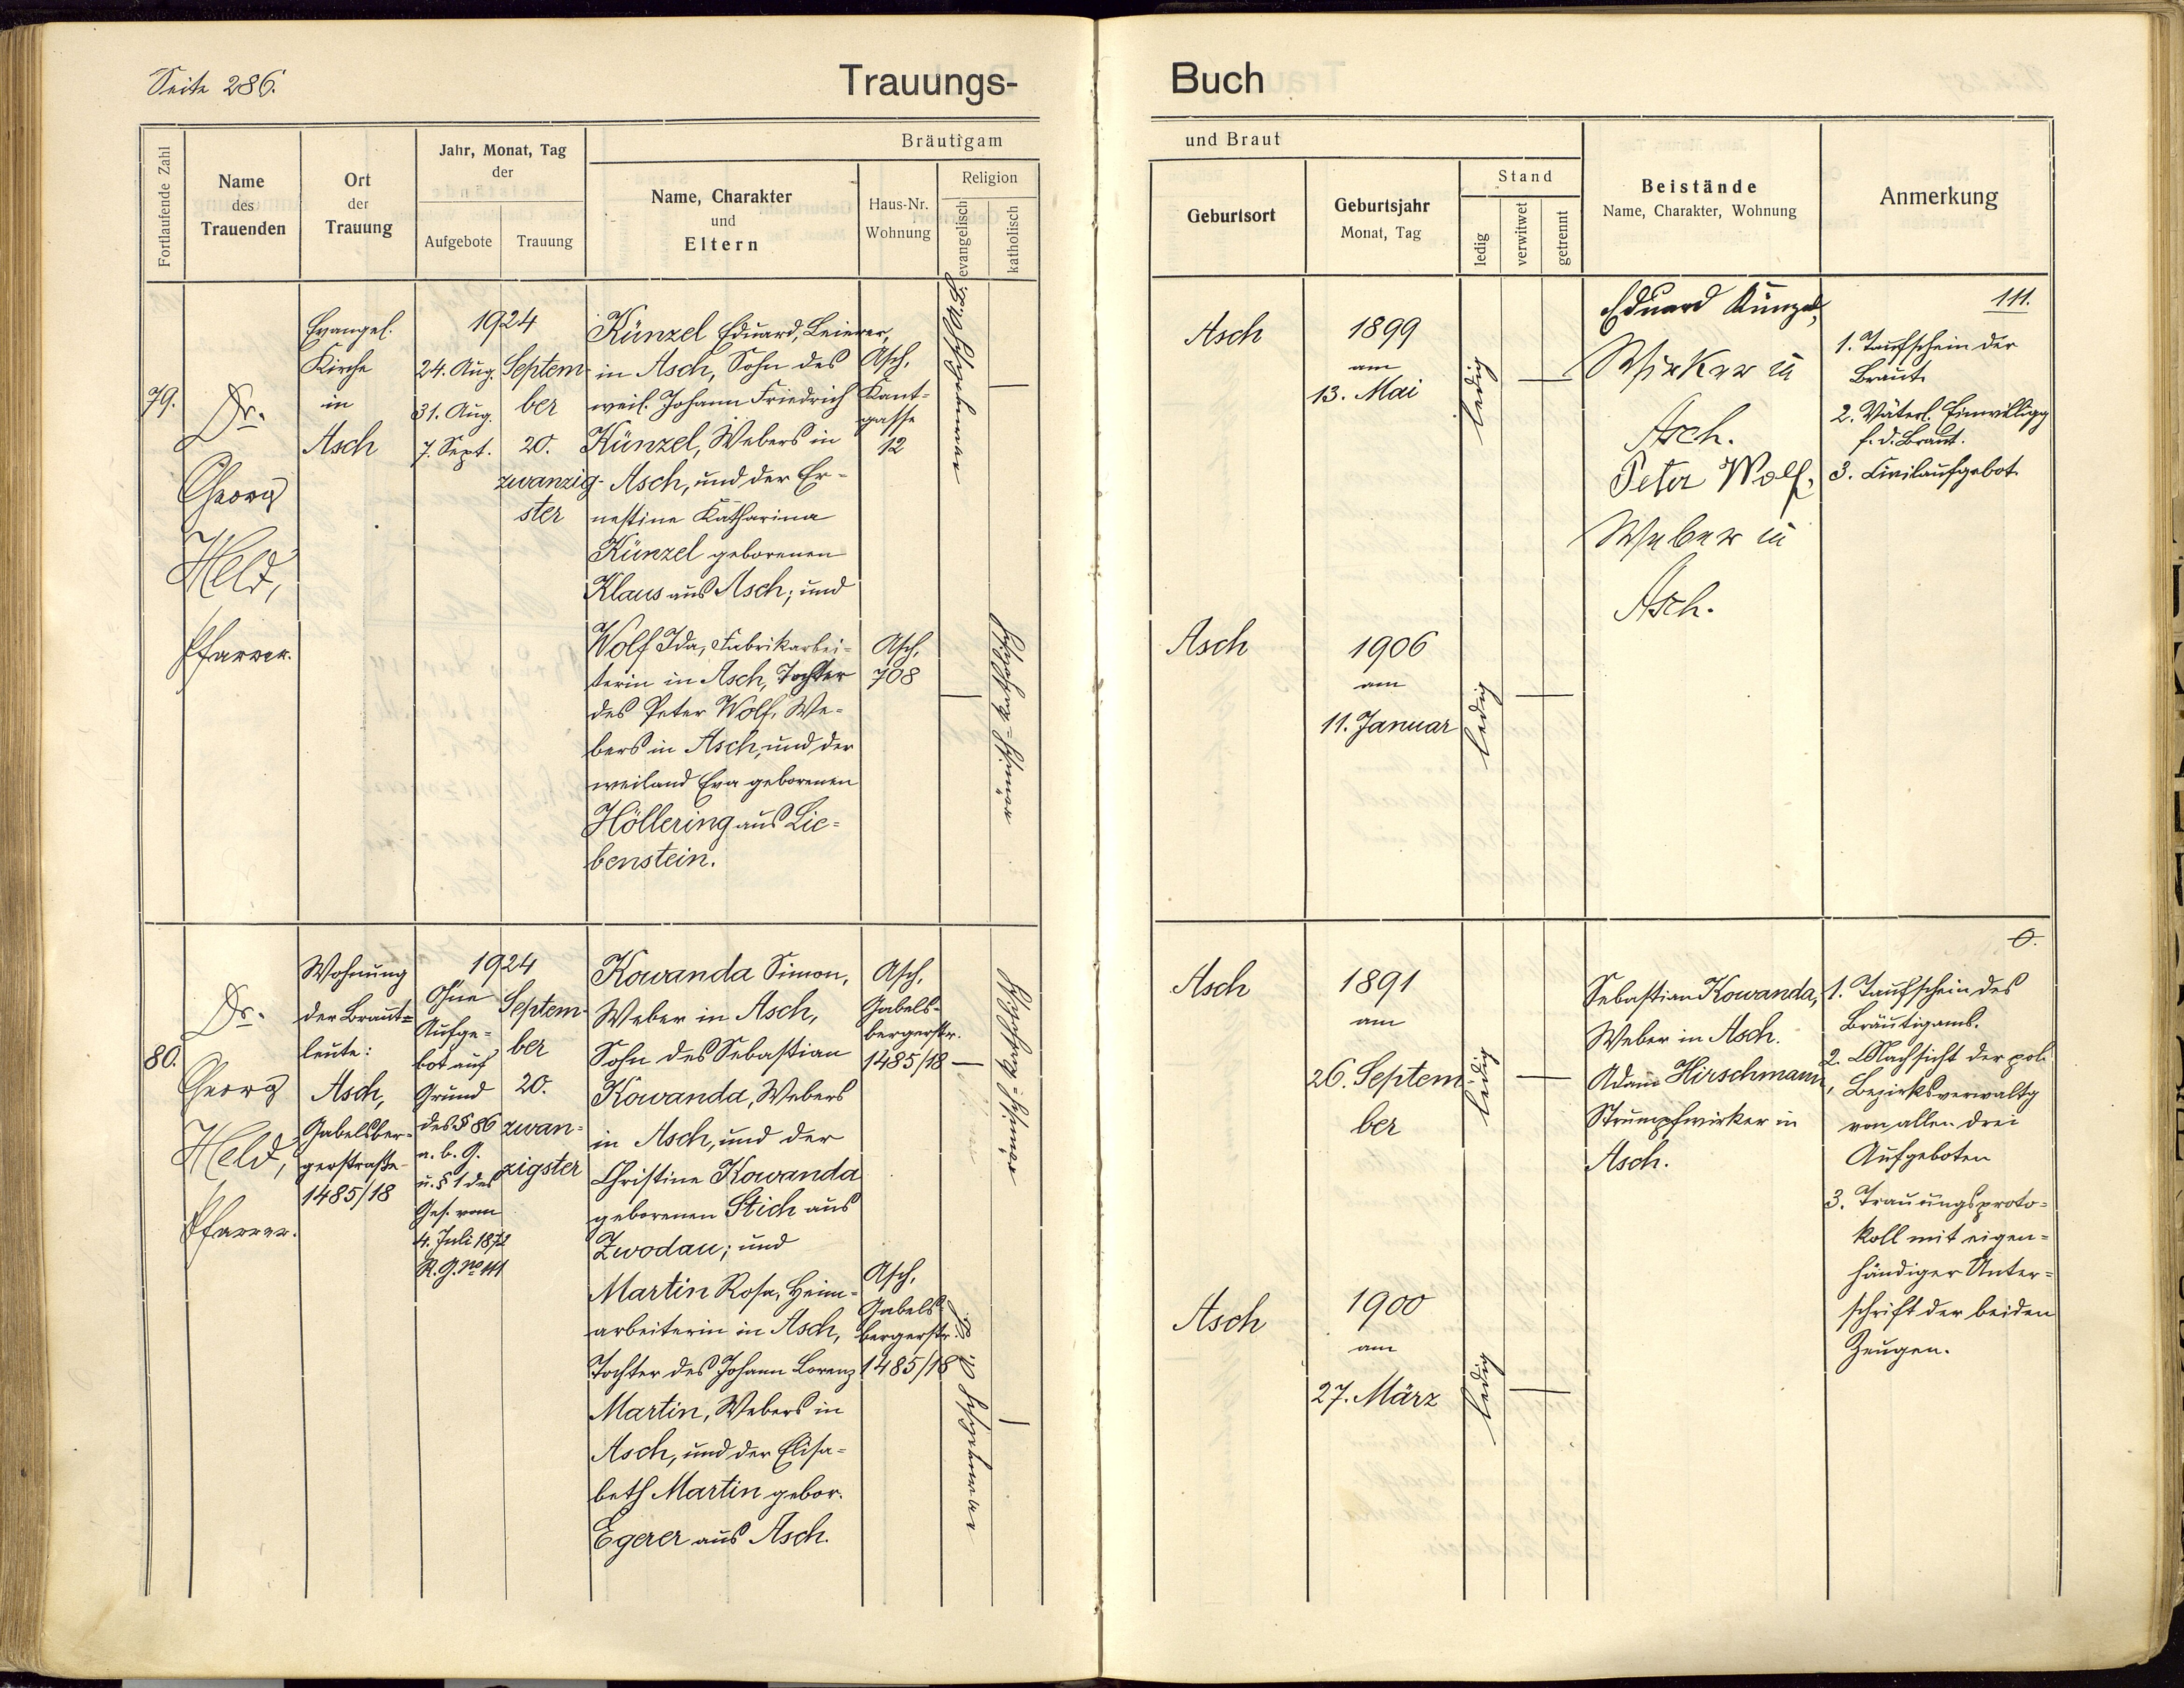 Seite 286.
Trauungs-
Buch
Fortlaufende Zahl
Name
des
Trauenden
Ort
der
Trauung
Jahr, Monat, Tag
der
Aufgebote
Trauung
Bräutigam
Name, Charakter
und
Eltern
Haus-Nr.
Wohnung
Religion
evangelisch
katholisch
und Braut
Geburtsort
Geburtsjahr
Monat, Tag
Stand
ledig
verwitwet
getrennt
Beistände
Name, Charakter, Wohnung
Anmerkung
79.
Dr.
Georg
Held,
Pfarrer.
Evangel.
Kirche
in
Asch
1924
24. Aug.
31. Aug.
7. Sept.
Septem-
ber
20.
zwanzig-
ster
Künzel Eduard, Leierer,
in Asch, Sohn des
weil. Johann Friedrich
Künzel, Webers in
Asch, und der Er-
nestine Katharina
Künzel geborenen
Klaus aus Asch; und
Asch,
Kant-
gasse
12
Wolf Ida, Fabrikarbei-
terin in Asch, Tochter
des Peter Wolf, We-
bers in Asch, und der
weiland Eva geborenen
Höllering aus Lie-
benstein.
Asch,
708
römisch-katholisch
Asch
1899
am
13. Mai
ledig
Asch
1906
am
11. Januar
ledig
Eduard Künzel,
Wirker in
Asch.
Peter Wolf,
Weber in
Asch.
111.
1. Taufschein der
Braut.
2. Väterl. Einwilligg
f. d. Braut.
3. Civilaufgebot.
80.
Dr.
Georg
Held,
Pfarrer.
Wohnung
der Braut-
leute:
Asch,
Gabelsber-
gerstraße
1485/18
1924
Ohne
Aufge-
bot auf
Grund
des § 86
a. b. G.
u. § 1 des
Ges. vom
4. Juli 1872
R. G. No 111
Septem-
ber
20.
zwan-
zigster
Kowanda Simon,
Weber in Asch,
Sohn des Sebastian
Kowanda, Webers
in Asch, und der
Christine Kowanda
geborenen Stich aus
Zwodau; und
Asch,
Gabels-
bergerstr.
1485/18
römisch-katholisch
Martin Rosa, Heim-
arbeiterin in Asch,
Tochter des Johann Lorenz
Martin, Webers in
Asch, und der Elisa-
beth Martin gebor.
Egerer aus Asch.
Asch,
Gabels-
bergerstr.
1485/18
Asch
1891
am
26. Septem
ber
ledig
Asch
1900
am
27. März
ledig
Sebastian Kowanda,
Weber in Asch.
Adam Hirschmann,
Strumpfwirker in
Asch.
0.
1. Taufschein des
Bräutigams.
2. Nachsicht der pol.
Bezirksverwaltg
von allen drei
Aufgeboten
3. Trauungsproto-
koll mit eigen-
händiger Unter-
schrift der beiden
Zeugen.